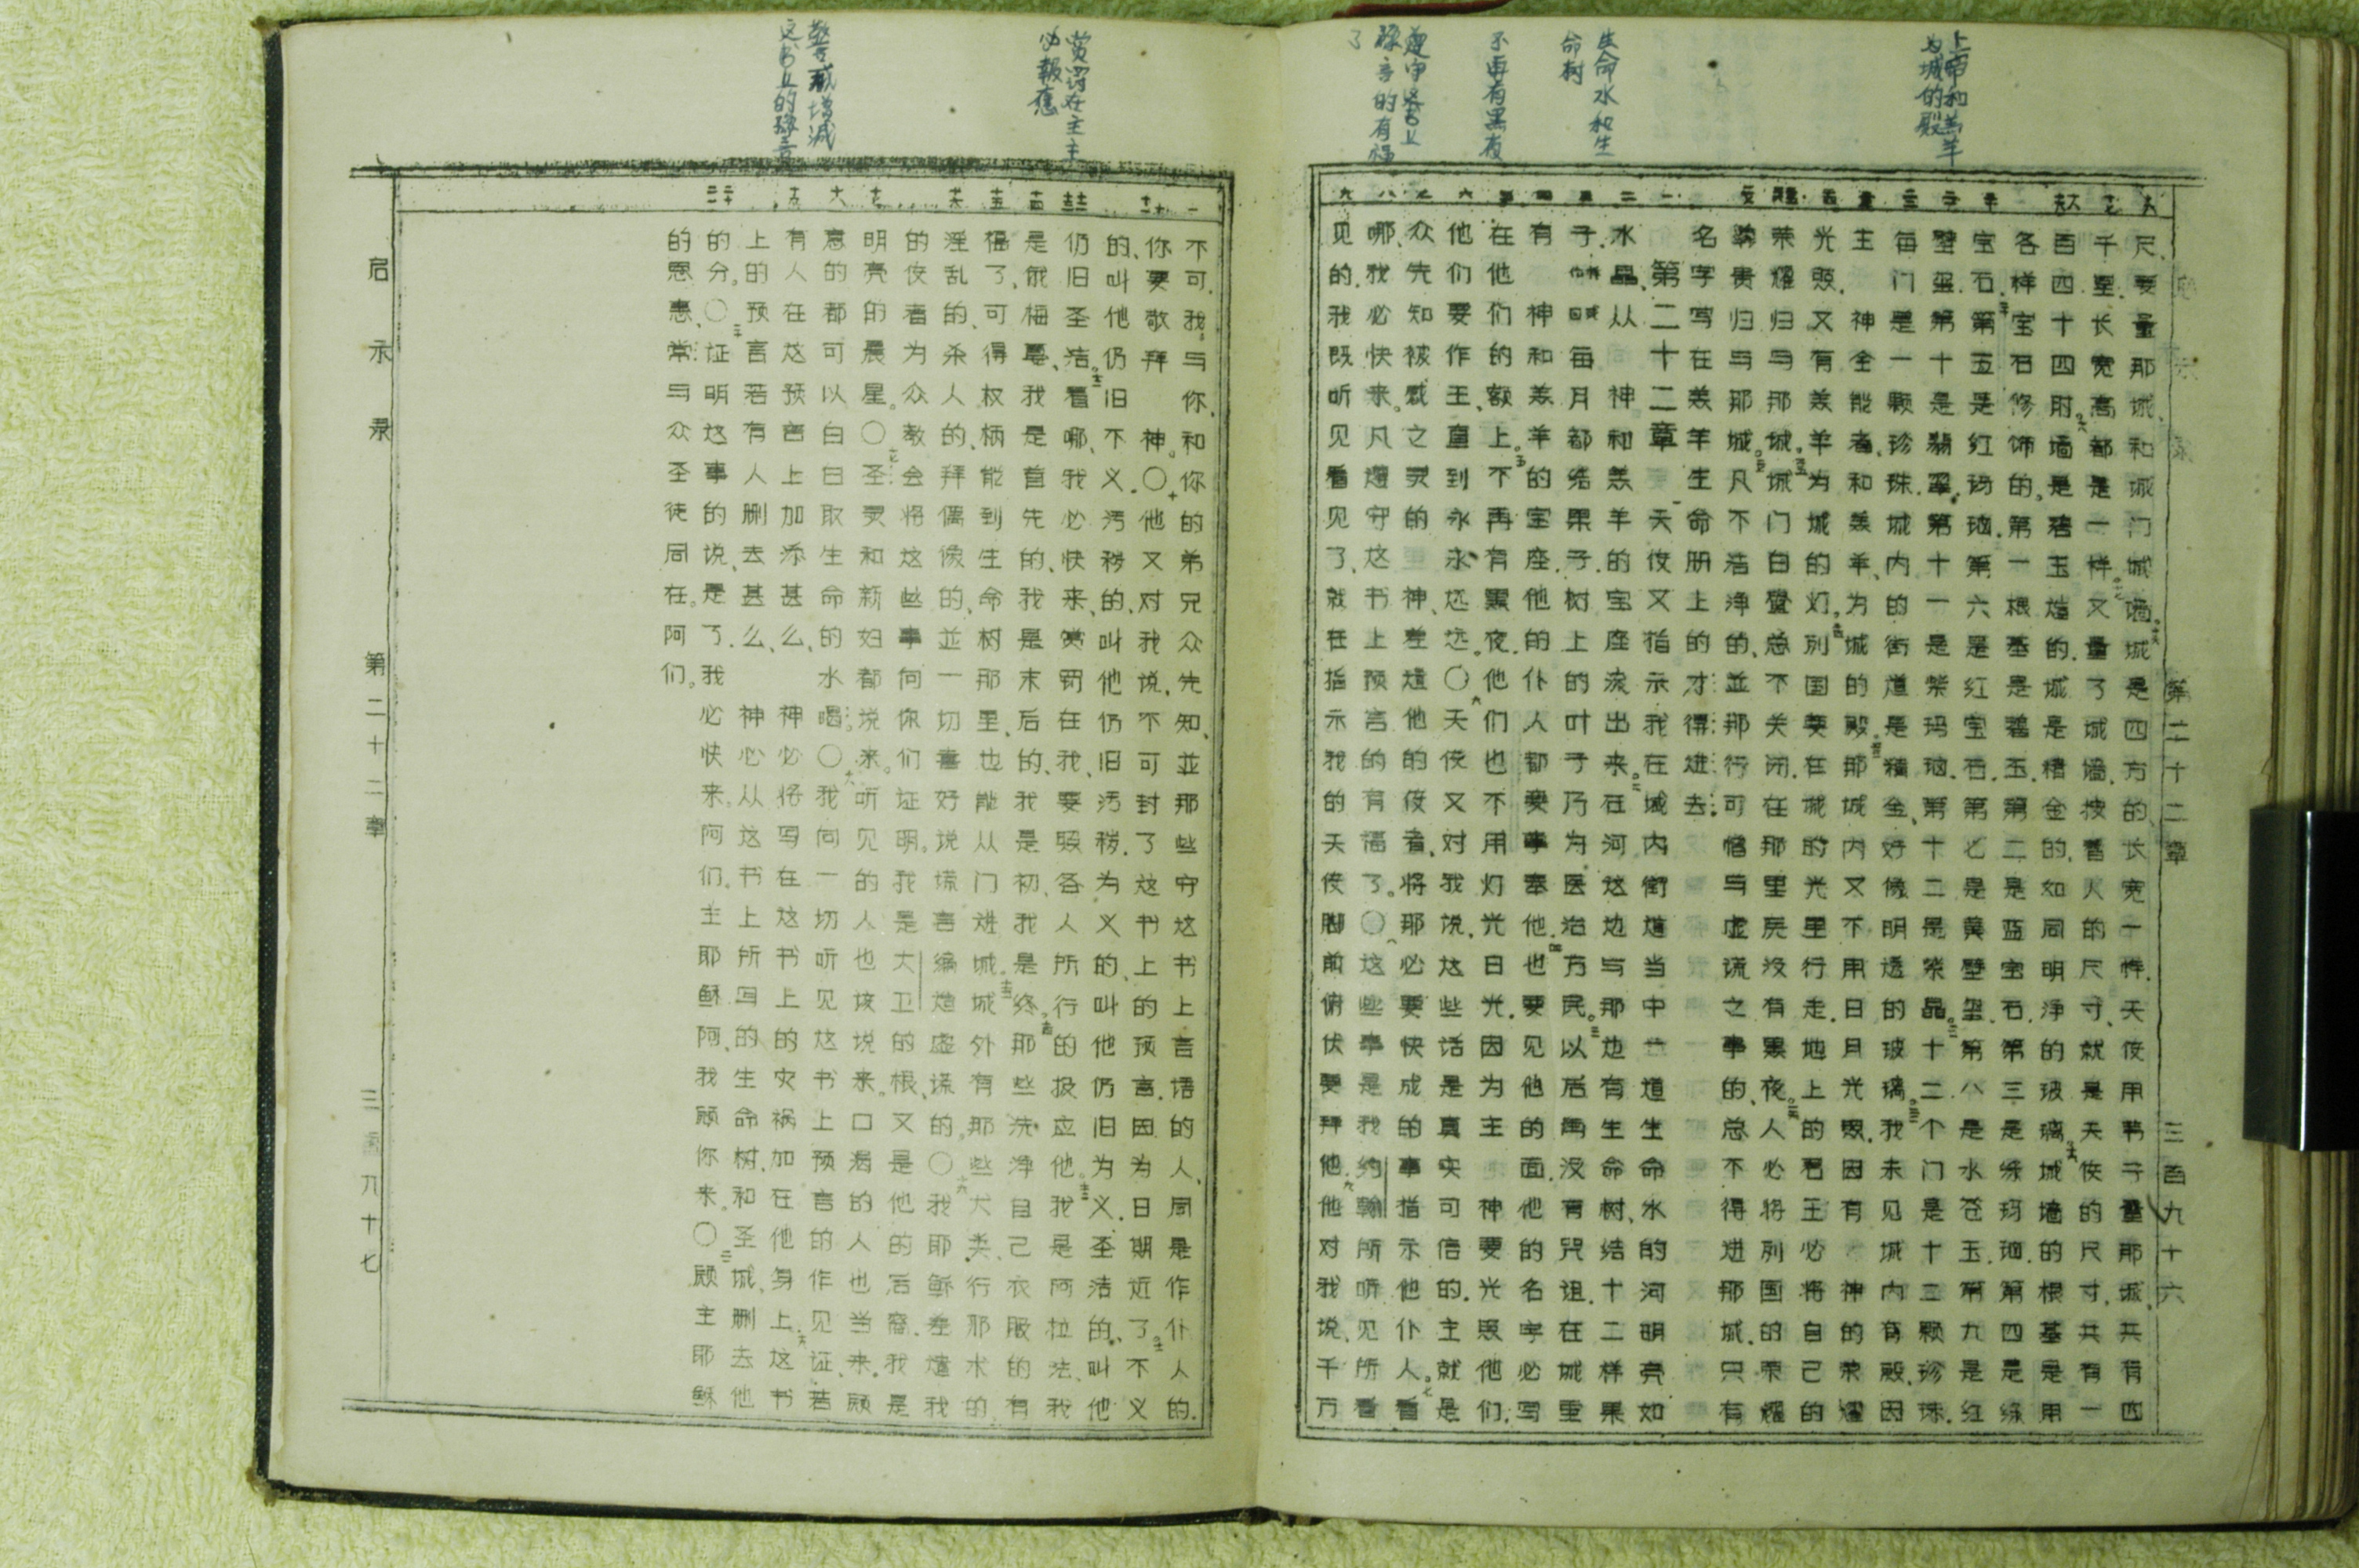 上帝和羔羊
为城的殿
生命水和生
命树
不再有黑夜
遵守这书上
预言的有福
了
启示录
第二十二章
三百九十六
尺.要量那城、和城门城墙。城是四方的、长宽一样.天使用苇子量那城.共有四
千里.长宽高都是一样。又量了城墙、按着人的尺寸、就是天使的尺寸.共有一
百四十四肘。墙是碧玉造的.城是精金的、如同明净的玻璃。城墙的根基是用
各样宝石修饰的。第一根基是碧玉.第二是蓝宝石.第三是绿玛瑙.第四是绿
宝石.第五是红玛瑙.第六是红宝石.第七是黄璧玺.第八是水苍玉.第九是红
璧玺.第十是翡翠.第十一是紫玛瑙.第十二是紫晶。十二个门是十二颗珍珠.
每门是一颗珍珠.城内的街道是精金、好像明透的玻璃。我未见城内有殿、因
主 神全能者、和羔羊、为城的殿。那城内又不用日月光照.因有 神的荣耀
光照.又有羔羊为城的灯。列国要在城的光里行走.地上的君王必将自己的
荣耀归与那城。城门白昼总不关闭.在那里原没有黑夜。人必将列国的荣耀
尊贵归与那城。凡不洁净的、並那行可憎与虚谎之事的、总不得进那城.只有
名字写在羔羊生命册上的才得进去.
第二十二章 天使又指示我在城内街道当中一道生命水的河明亮如
水晶、从 神和羔羊的宝座流出来。在河这边与那边有生命树、结十二样果
子.每月都结果子.树上的叶子乃为医治万民。以后再没有咒诅.在城里
有 神和羔羊的宝座.他的仆人都要事奉他.也要见他的面.他的名字必写
在他们的额上。不再有黑夜.他们也不用灯光日光.因为主 神要光照他们.
他们要作王、直到永永远远。〇天使又对我说、这些话是真实可信的.主就是
众先知被感之灵的 神、差遣他的使者、将那必要快成的事指示他仆人。看
哪、我必快来。凡遵守这书上预言的有福了。〇这些事是我约翰所听见所看
见的.我既听见看见了、就在指示我的天使脚前俯伏要拜他.他对我说、千万
赏罚在主主
必報應
警戒增减
这书上的预言
不可.我与你、和你的弟兄众先知、並那些守这书上言语的人、同是作仆人的.
你要敬拜 神。〇他又对我说、不可封了这书上的预言.因为日期近了。不义
的、叫他仍旧不义.污秽的、叫他仍旧污秽.为义的、叫他仍旧为义.圣洁的、叫他
仍旧圣洁。看哪、我必快来、赏罚在我、要照各人所行的报应他。我是阿拉法、我
是俄梅戛、我是首先的、我是末后的、我是初、我是终。那些洗净自己衣服的有
福了、可得权柄能到生命树那里、也能从门进城。城外有那些犬类、行邪术的
淫乱的、杀人的、拜偶像的、並一切喜好说谎言编造虚谎的。〇我耶稣差遣我
的使者为众教会将这些事向你们证明。我是大卫的根、又是他的后裔.我是
明亮的晨星。〇圣灵和新妇都说来。听见的人也该说来.口渴的人也当来.愿
意的都可以白白取生命的水喝。〇我向一切听见这书上预言的作见证、若
有人在这预言上加添甚么、 神必将写在这书上的灾祸加在他身上.这书
上的预言、若有人删去甚么、 神必从这书上所写的生命树、和圣城、删去他
的分。〇证明这事的说、是了.我必快来。阿们。主耶稣阿、我愿你来。〇愿主耶稣
的恩惠、常与众圣徒同在。阿们。
启示录
第二十二章
三百九十七